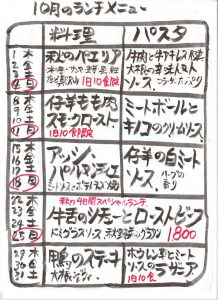 10月のランチメニュー
料理
パスタ
1 木
2 金
3 土
4 日
秋のパエリア
1日10食限定
牛肉と牛アキレス腱、
大根の辛味トマト
ソース
8 木
9 金
10 土
11 日
仔羊もも肉
スモークロースト
1日10食限定
ミートボールと
キノコのクリームソース
15 木
16 金
17 土
18 日
アッシ・
パルマンティエ
仔羊の白ミート
ソース ハーブの
香り
22 木
23 金
24 土
25 日
秋の4日間スペシャルランチ
牛舌のシチューとローストビーフ
ドミグラスソース
1800
29 木
30 金
31 土
鴨のステーキ
大根
ホウレン草とミート
ソースのラザニア
1日10食